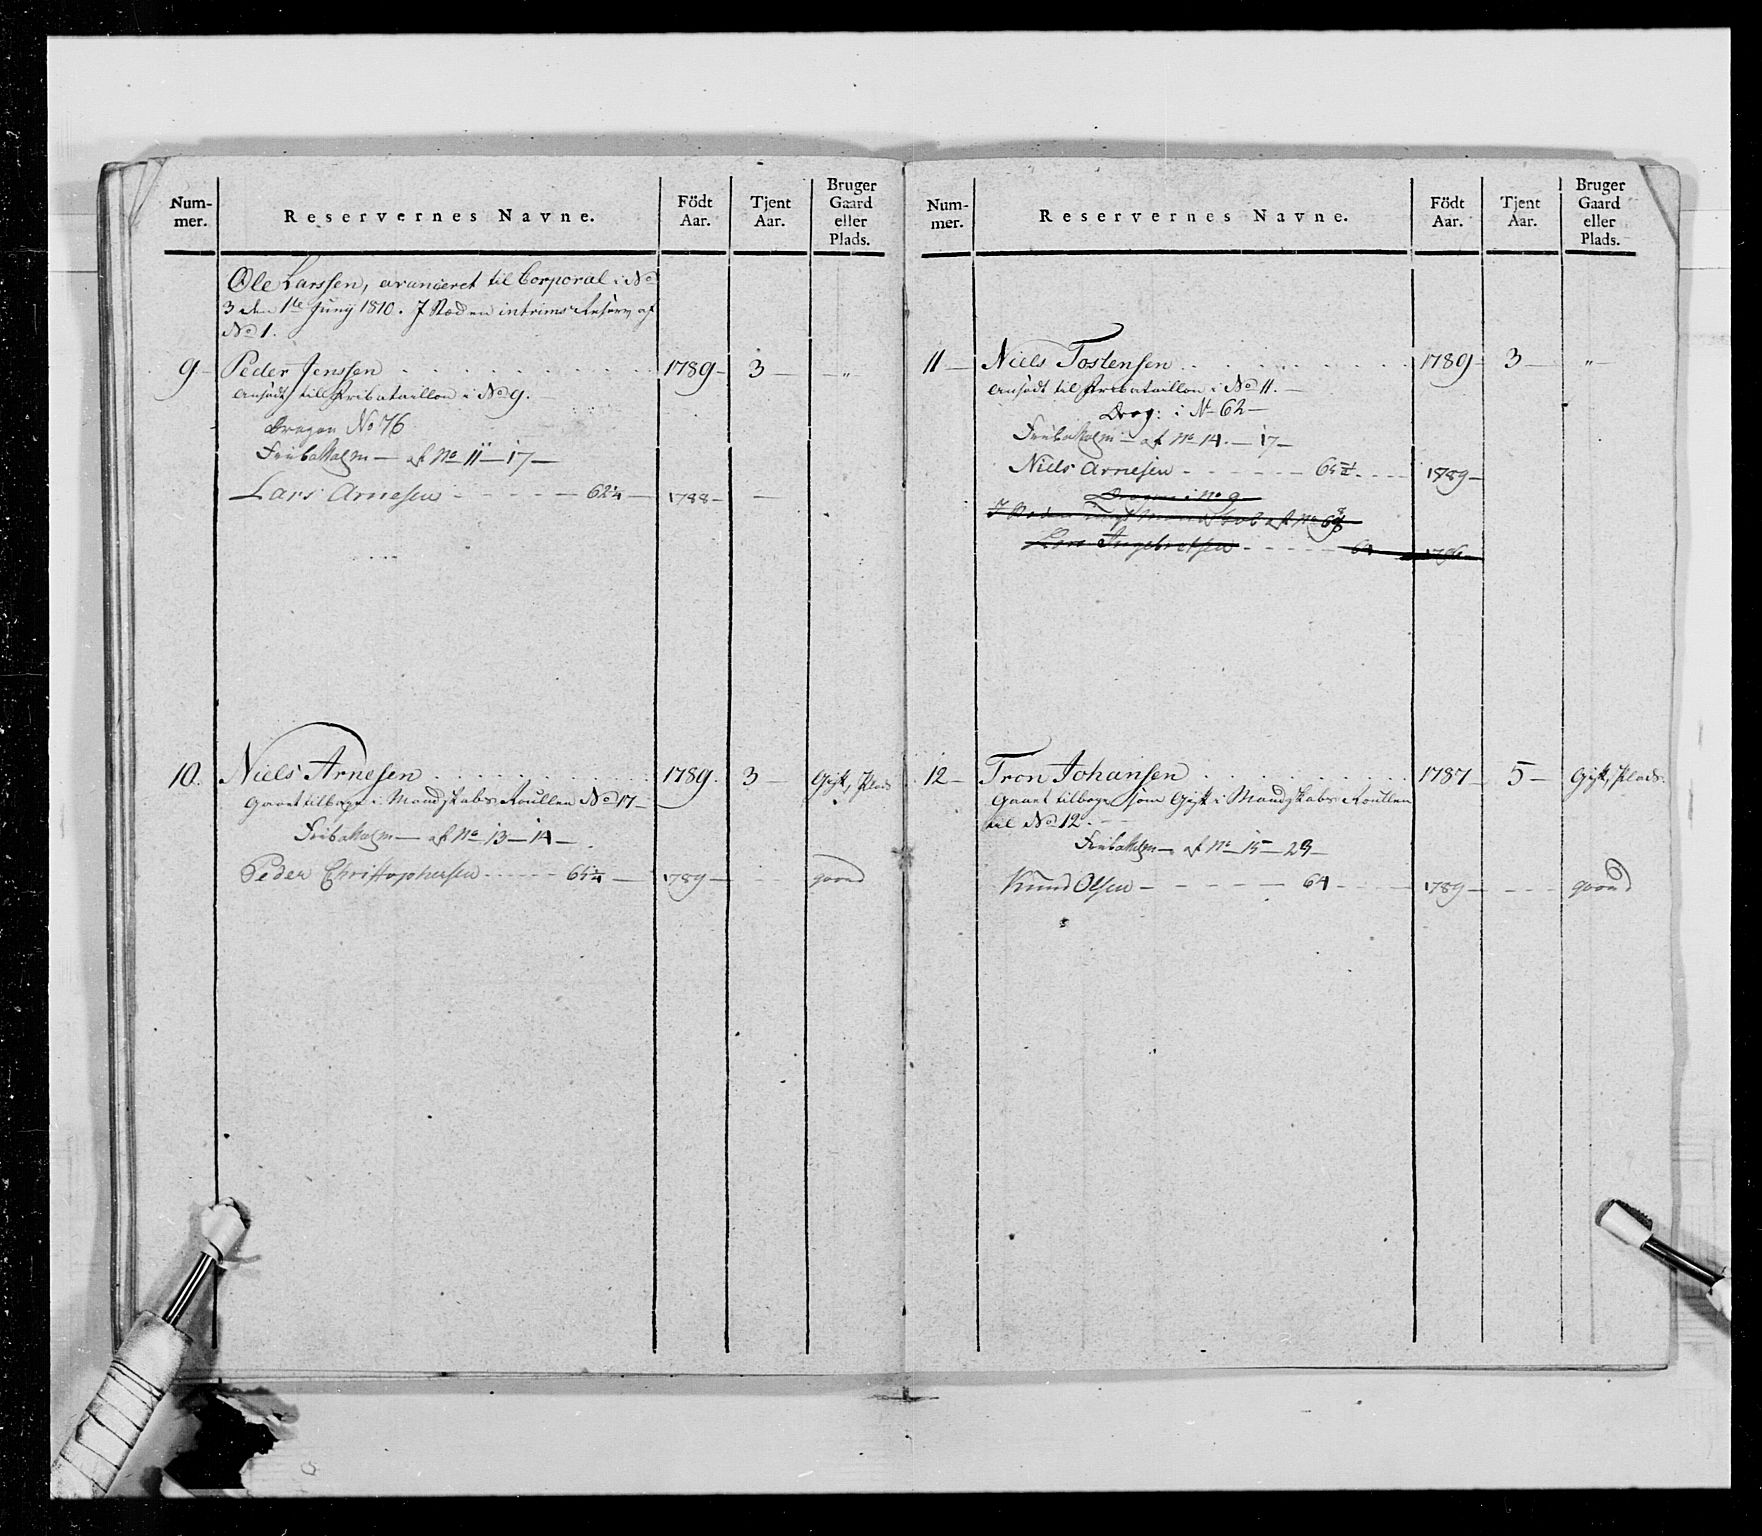 Num-
mer.
Reservernes Navne.
Födt
Aar.
Tjent
Aar.
Bruger
Gaard
eller
Plads.
Ole Larssen, avanceret til Corporal i No
3 den 1te Juny 1810. I Stæden intrims Reserv af
No 1.
9 Peder Jenssen 1789 3 "
Ansödt till Fribataillon i No 9.
Dragon No 76
Fribattalgn af No 11 17
Lars Arnesen 62¼ 1788
10. Niels Arnesen 1789. 3 Gift, Plads
Gaaet tilbage i Mandskabs Roullen No 17
Fribattalgn af No 13 14
Peder Christophersen 65¼ 1789 gaard
Num-
mer.
Reservernes Navne.
Födt
Aar.
Tjent
Aar.
Bruger
Gaard
eller
Plads.
11 Niels Tostensen 1789 3 "
Ansödt til Fribataillon i No 11.
Drag: i No 62
Fribattalgn af No 14. 17
Niels Arnesen 1789
Dragon i No 9
af No
Lars Ingebretsen 1786
12 Tron Johansen 1787 5 Gift, Plads.
Gaaet tilbage som Gift i Mandskabs Roullen
til No 12.
Fribattalgn af No 15 29
Knud Olsen 64 1789 gaard